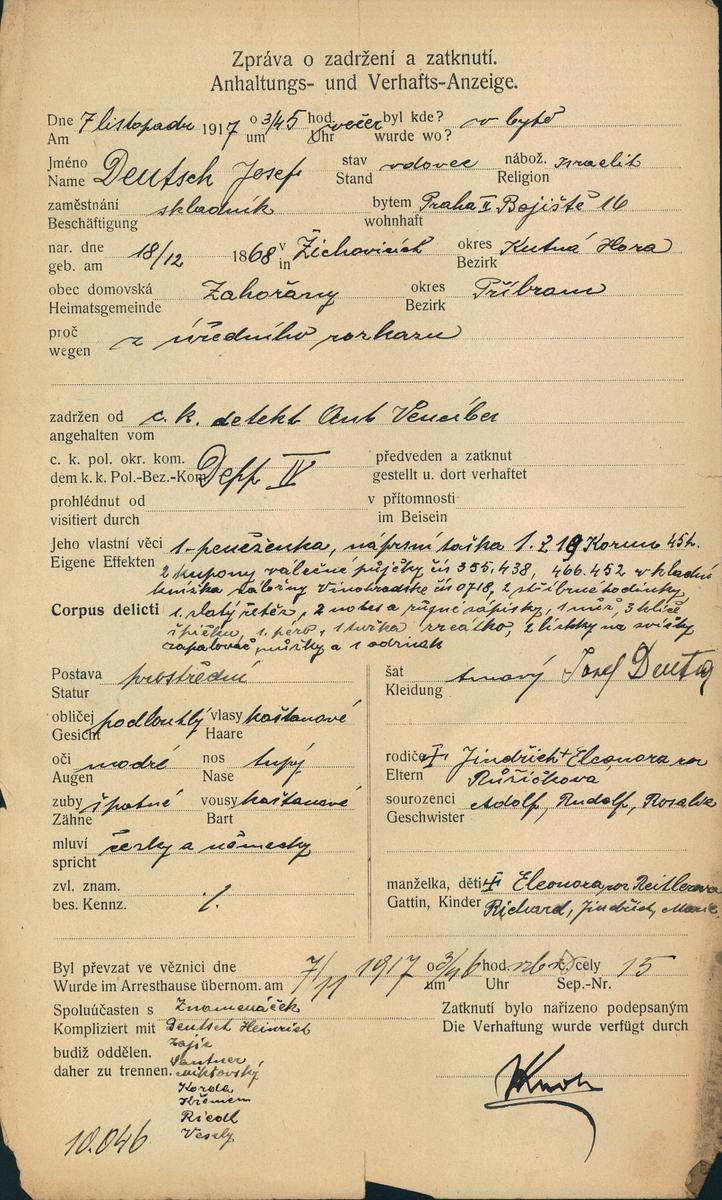 Zpráva o zadržení a zatknutí.
Anhaltungs- und Verhafts-Anzeige.
Dne 7 listopadu 1917 o 3/45 hod. večer byl kde? v bytě
Am um Uhr wurde wo?
Jméno Deutsch Josef stav vdovec nábož. israelit
Name Stand Religion
zaměstnání skladník bytem Praha II Bojiště 16
Beschäftigung wohnhaft
nar. dne 18/12 1868 v Žichovicích okres Kutná Hora
geb. am in Bezirk
obec domovská Zahořany okres Příbram
Heimatsgemeinde Bezirk
proč z úředního rozkazu
wegen
zadržen od c. k. detekt Ant
angehalten vom
c. k. pol. okr. kom. Depp IV předveden a zatknut
dem k. k. Pol.-Bez.-Kom. gestellt u. dort verhaftet
prohlédnut od v přítomnosti
visitiert durch im Beisein
Jeho vlastní věci 1. peněženka, náprsní taška 1. 219 Korun 45 h.
Eigene Effekten 2 kupony válečné půjčky čís 355.438, 466.452 vkladní
knížka záložny Vinohradské čís 0718, 2 stříbrné hodinky,
Corpus delicti 1. zlatý řetěz, 2 notesa různé zápisky, 3 klíče
1. péro, 1 tužka zrcátko, 2 lístky na
zapalovač, nůžky a 1
Postava prostřední šat tmavý Josef Deutsch
Statur Kleidung
obličej podlouhlý vlasy kaštanové
Gesicht Haare
oči modré nos tupý rodiče † Jindřich † Eleonora roz
Augen Nase Eltern Růžičkova
zuby špatné vousy kaštanové sourozenci Adolf, Rudolf, Rosalie
Zähne Bart Geschwister
mluví česky a německy
spricht
zvl. znam. manželka, děti † Eleonora roz Reitlerova
bes. Kennz. Gattin, Kinder Richard, Jindřich, Marie
Byl převzat ve věznici dne 7/11 1917 o 3/46 hod. č. cely 15
Wurde im Arresthause übernom. am um Uhr Sep.-Nr.
Spoluúčasten s Znamenáček Zatknutí bylo nařízeno podepsaným
Kompliziert mit Deutsch Heinrich Die Verhaftung wurde verfügt durch
budiž oddělen. Zajíc
daher zu trennen. Santner
Korda
Křemen
Riedl
Veselý
10.046